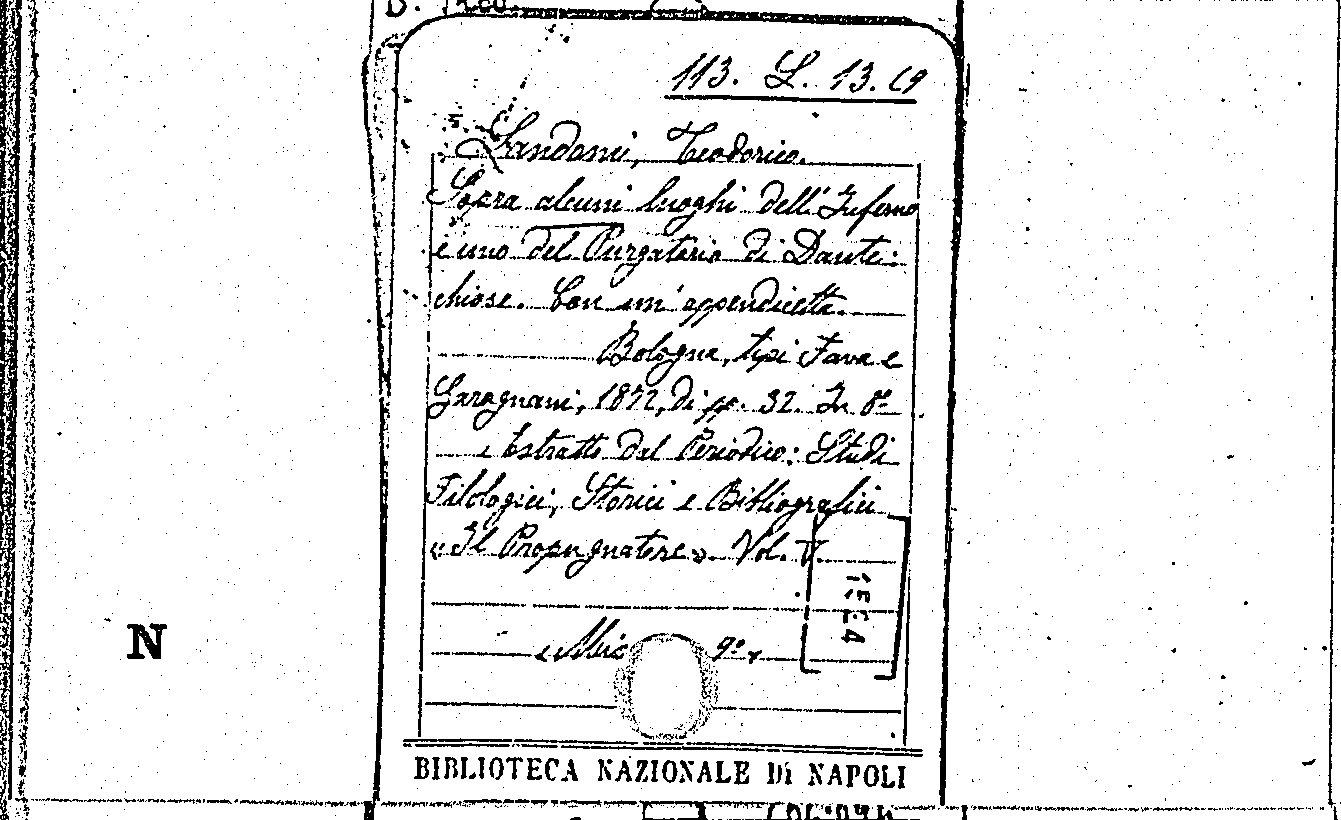 113. L. 13. (9
Landoni, Teodorico.
Sopra alcuni luoghi dell'Inferno
e uno del Purgatorio di Dante:
chiose. Con un'appendicetta.
Bologna, tipi Fava e
Garagnani, 1872, di pp. 32. In 8º
Estratto dal Periodico: Studi
Filologici, Storici e Bibliografici
«Il Propugnatore». Vol. V.
N
BIBLIOTECA NAZIONALE DI NAPOLI